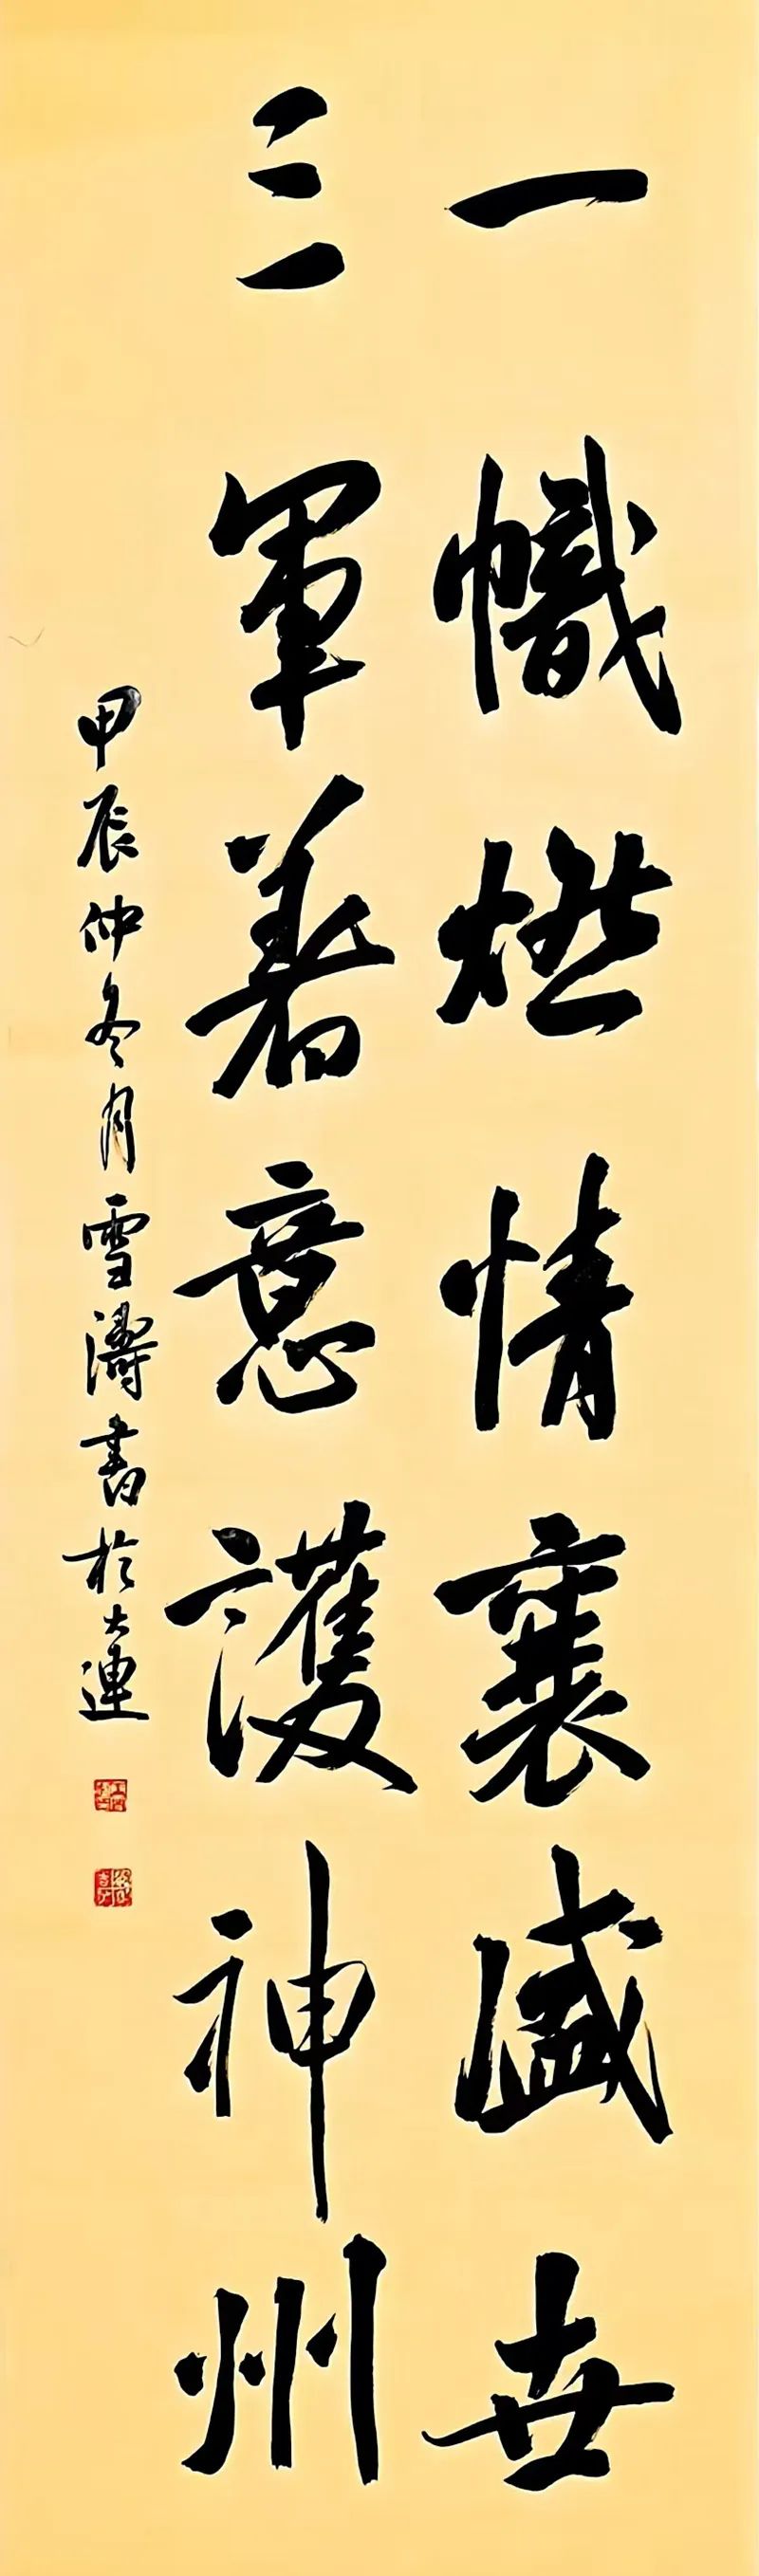 一幟燃情襄盛世
三軍着意護神州
甲辰仲冬月雪濤書於大連